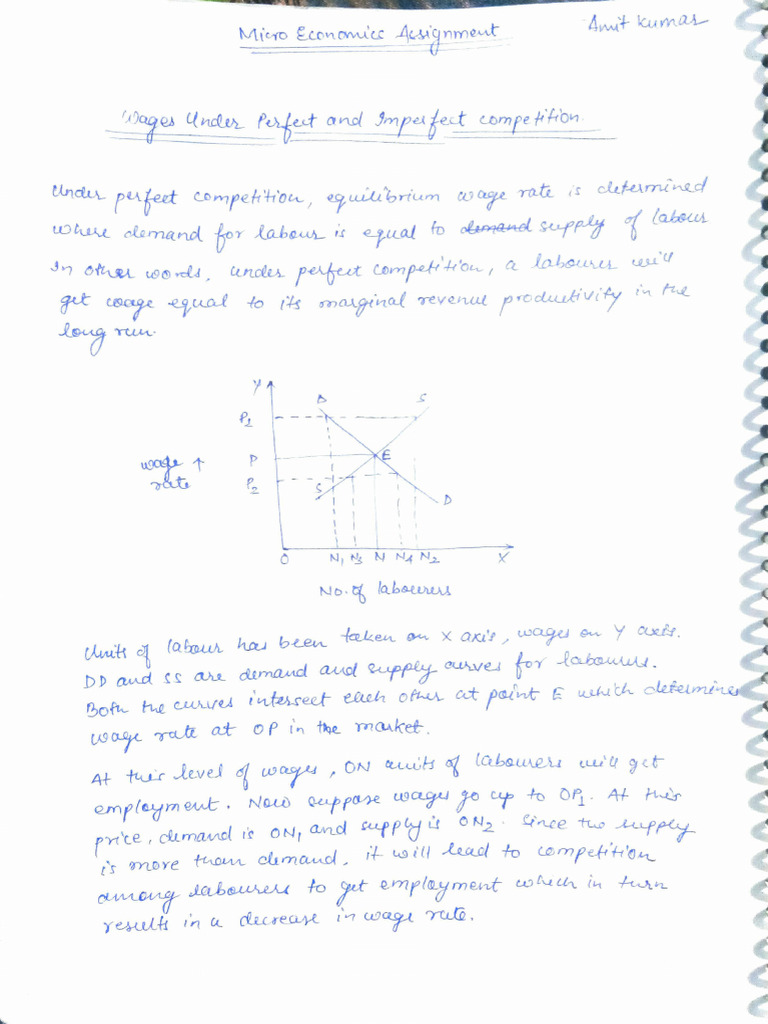 Micro Economics Assignment
Amit Kumar
Wages Under Perfect and Imperfect competition.
Under perfect competition, equilibrium wage rate is determined
where demand for labour is equal to demand supply of labour
In other words, under perfect competition, a labourer will
get wage equal to its marginal revenue productivity in the
long run.
Y
D S
P1
wage ↑ P E
rate P2
S D
O N1 N3 N N4 N2 X
No. of labourers
Units of labour has been taken on X axis, wages on Y axis.
DD and SS are demand and supply curves for labourers.
Both the curves intersect each other at point E which determines
wage rate at OP in the market.
At this level of wages, ON units of labourers will get
employment. Now suppose wages go up to OP1. At this
price, demand is ON1 and supply is ON2. Since the supply
is more than demand, it will lead to competition
among labourers to get employment which in turn
results in a decrease in wage rate.